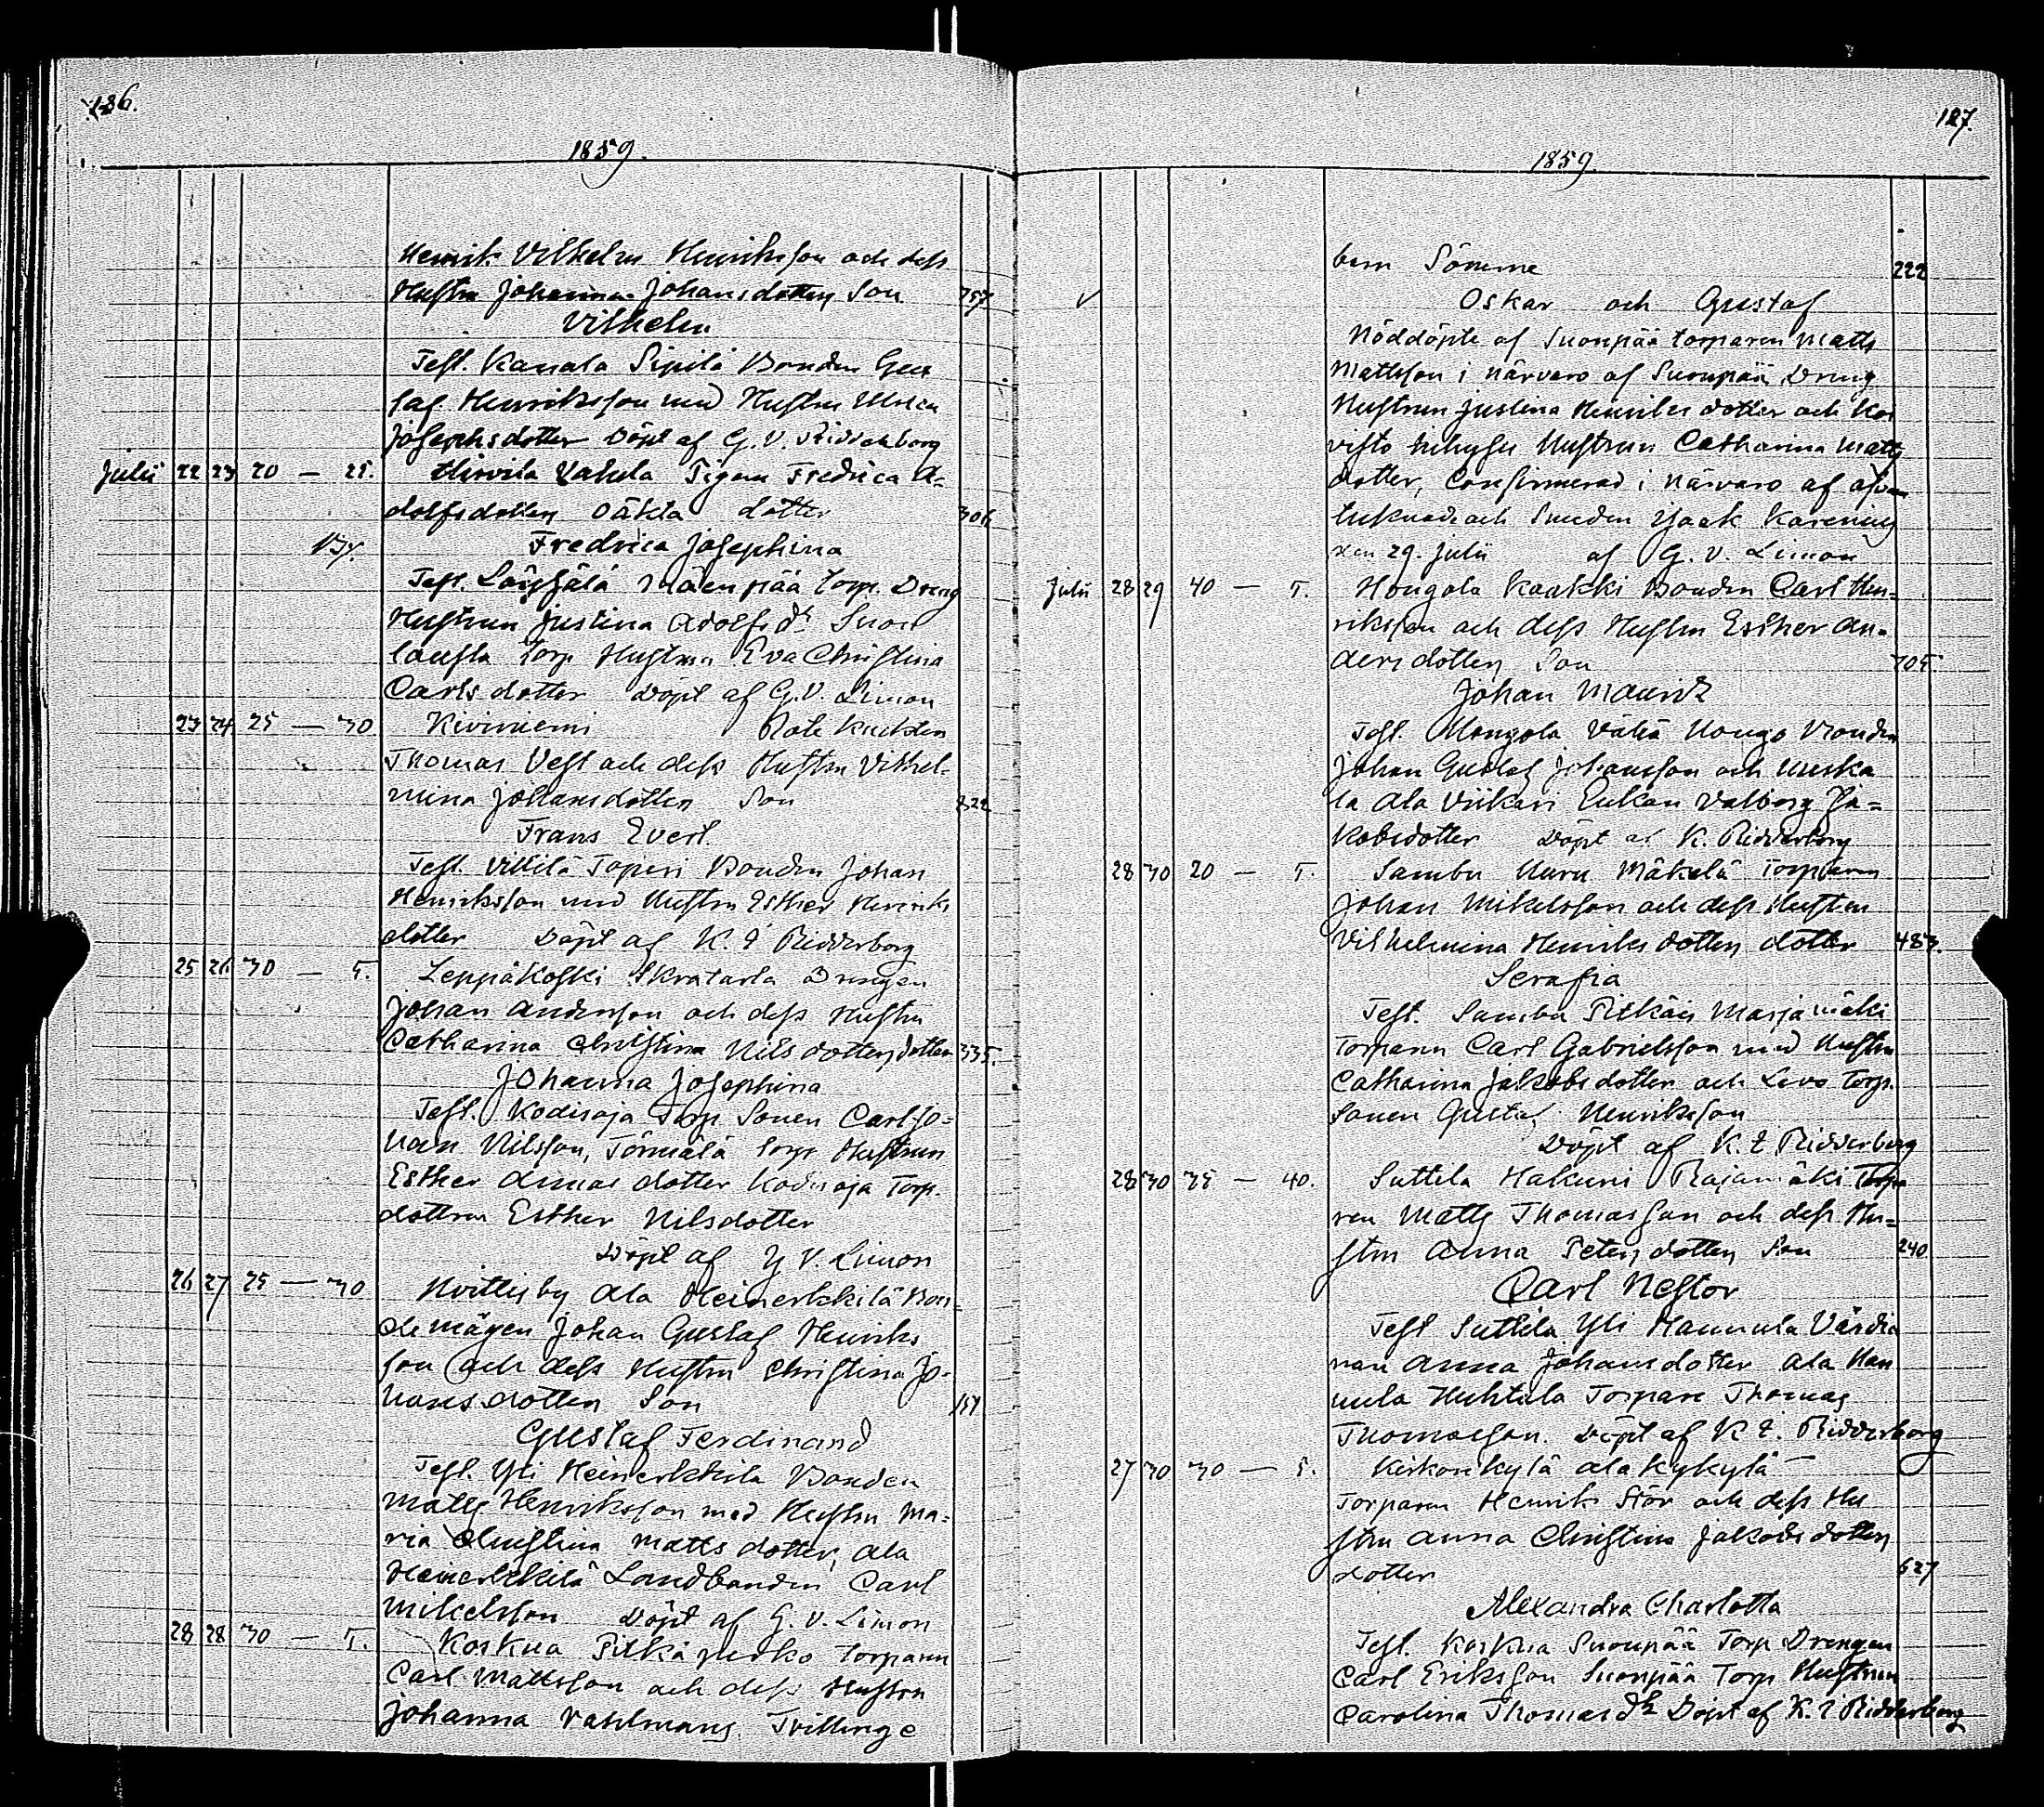 126.
1859.
Henrik Vilhelm Henriksson och dess
Hustru Johanna Johansdotters Son 757
Vilhelm
Test. Kanala Sipilä Bonden Gus
taf Henriksson med Hustru Ulrica
Josephsdotter Döpt af G. V. Ridderborg
Julii 22 23 20 — 25. Hirvila Vahula Pigan Fredrica A=
dolfsdotters oäkta dotter 306
Fredrica Josephina
Test. Mäenpää Torp. Dreng
Hustrun Justina Adolfs dr Suon
lausta Torp Hustrun Eva Christina
Carls dotter Döpt af G. V. Limon
23 24 25 — 30 Kiviniemi Rote Knekten
Thomas Vest och dess Hustru Vilhel=
mina Johansdotters Son 822
Frans Evert.
Test. Villilä Toperi Bonden Johan
Henriksson med Hustru Esther Henriks
dotter Döpt af K. E Ridderborg
25 26 30 — 5. Leppäkoski Skratarla Drengen
Johan Andersson och dess Hustru
Catharina Christina Nils dotters dotter 335.
Johanna Josephina
Test. Kodisoja Torp Sonen Carl Jo=
han Nilsson, Törmälä Torp Hustrun
Esther dotter Kodisoja Torp.
dottren Esther Nilsdotter
Döpt af G V. Limon
26 27 25 — 30 Hvittisby Ala Heinerkkilä Bon=
de mågen Johan Gustaf Henriks
son och dess Hustru Christina Jo=
hansdotters Son 151
Gustaf Ferdinand
Test. Yli Heinerkkilä Bonden
Matts Henriksson med Hustru Ma=
ria Christina Matts dotter, Ala
Heinerkkilä Landbonden Carl
Mikelsson Döpt af G. V. Limon
28 28 30 — 5. Koskua Pitkäjerko Torparen
Carl Mattsson och dess Hustru
Johanna Vahlmans Tvillinge
127.
1859.
barn Sönerne 222
Oskar och Gustaf
Nöddöpte af Suonpää torparen Matts
Mattsson i närvaro af Suonpää Dreng
Hustrun Justina Henriks dotter och Koi
visto Hustrun Catharina Matts
dotter, Confirmerad i närvaro af ofvan
tecknade och Smeden Isaak Karenius
den 29. Julii af G. V. Limon
Julii 28 29 40 — 5. Hongola Kaakki Bonden Carl Hen=
riksson och dess Hustru Esther An=
dersdotters Son 705
Johan Mauritz
Test. Hongola Vähä Hongo Bonden
Johan Gustaf Johansson och Huska
la Ala Viikari Enkan Valborg Ja=
kobsdotter Döpt af K. Ridderborg
28 30 20 — 5. Sambu Uuru Mäkelä Torparen
Johan Mikelsson och dess Hustru
Vilhelmina Henriks dotters dotter 483.
Serafia
Test. Sambu Pitkän Marjamäki
Torparen Carl Gabrielsson med Hustru
Catharina Jakobsdotter och Levo Torp.
Sonen Gustaf Henriksson
Döpt af K. E. Ridderborg
28 30 35 — 40. Suttila Hakuni Rajamäki Torpa
ren Matts Thomasson och dess Hu=
stru Anna Peters dotters Son 240
Carl Nestor
Test Suttila Yli Hannula Värdin
nan Anna Johansdotter Ala Han
nula Huhtala Torpare Thomas
Thomasson. Döpt af K E. Ridderborg
27 30 30 — 5. Kirkonkylä Alakykylä
Torparen Henrik Stör och dess Hu
stru Anna Christina Jakobs dotters
dotter 627
Alexandra Charlotta
Test. Koskua Suonpää Torp Drengen
Carl Eriksson Suonpää Torp Hustrun
Carolina Thomas dr Döpt af K. E Ridderborg